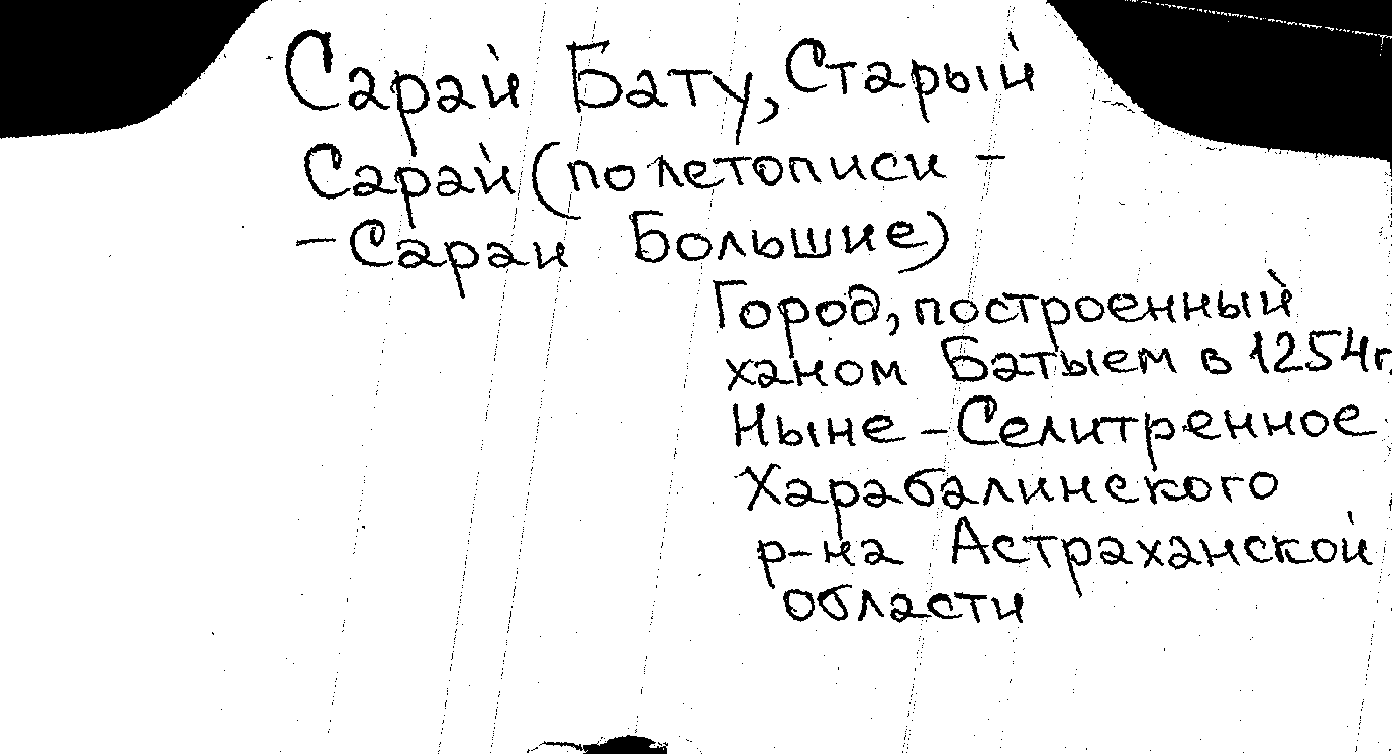 Сарай Бату, Старый
Сарай (по летописи -
- Сараи Большие)
Город, построенный
ханом Батыем в 1254г.
Ныне - Селитренное
Харабалинского
р-на Астраханской
области